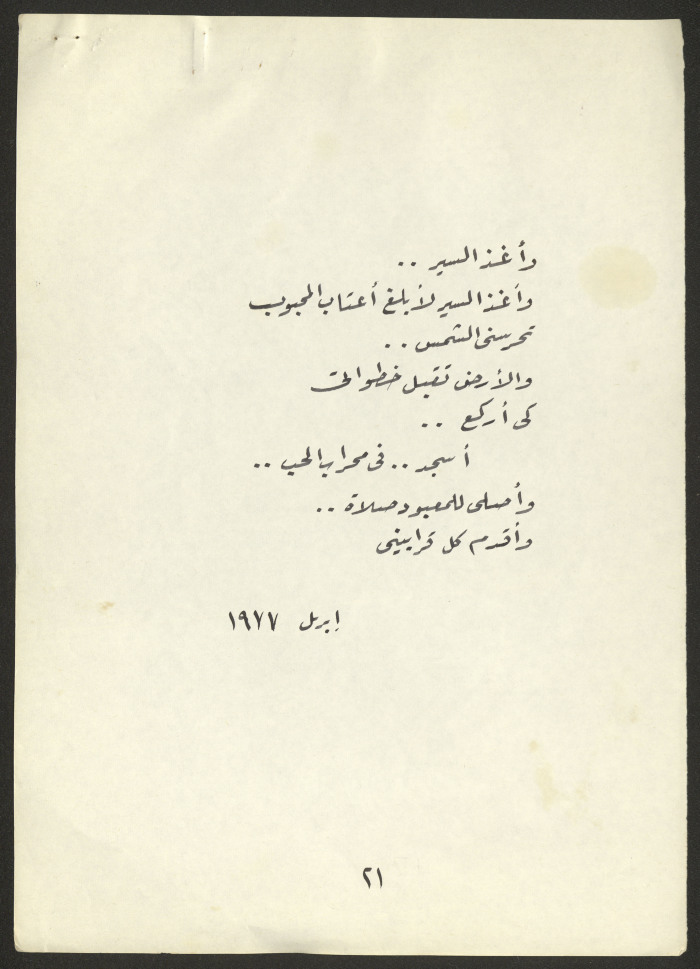 وأغذ السير ..
وأغذ السير لأبلغ أعتاب المحبوب
تحرسنى الشمس ..
والأرض تقبل خطواتى
كى أركع ..
أسجد .. فى محراب الحب ..
وأصلى للمعبود صلاة ..
وأقدم كل قرابينى
إبريل ١٩٧٧
٢١